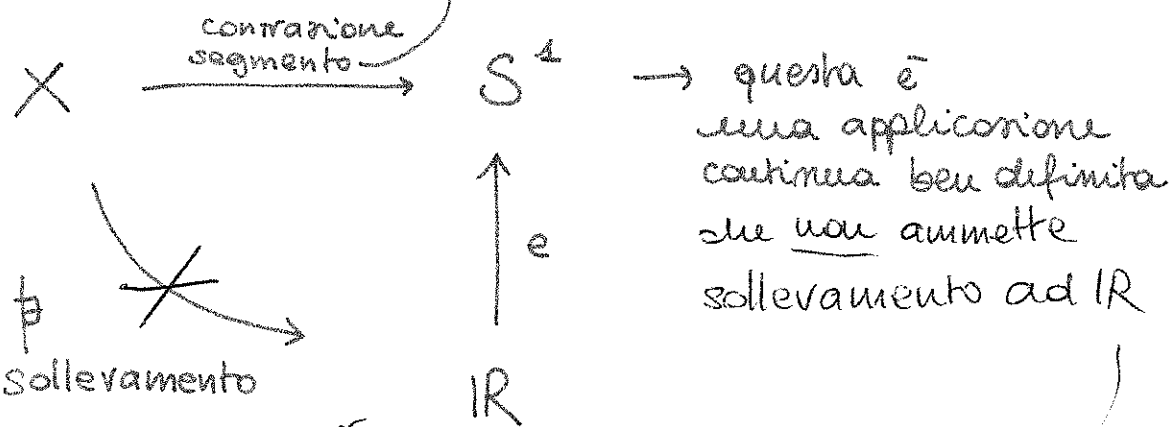 contrazione
segmento
X → S¹ → questa è
una applicazione
continua ben definita
che non ammette
sollevamento ad ℝ
e
∄
sollevamento
ℝ